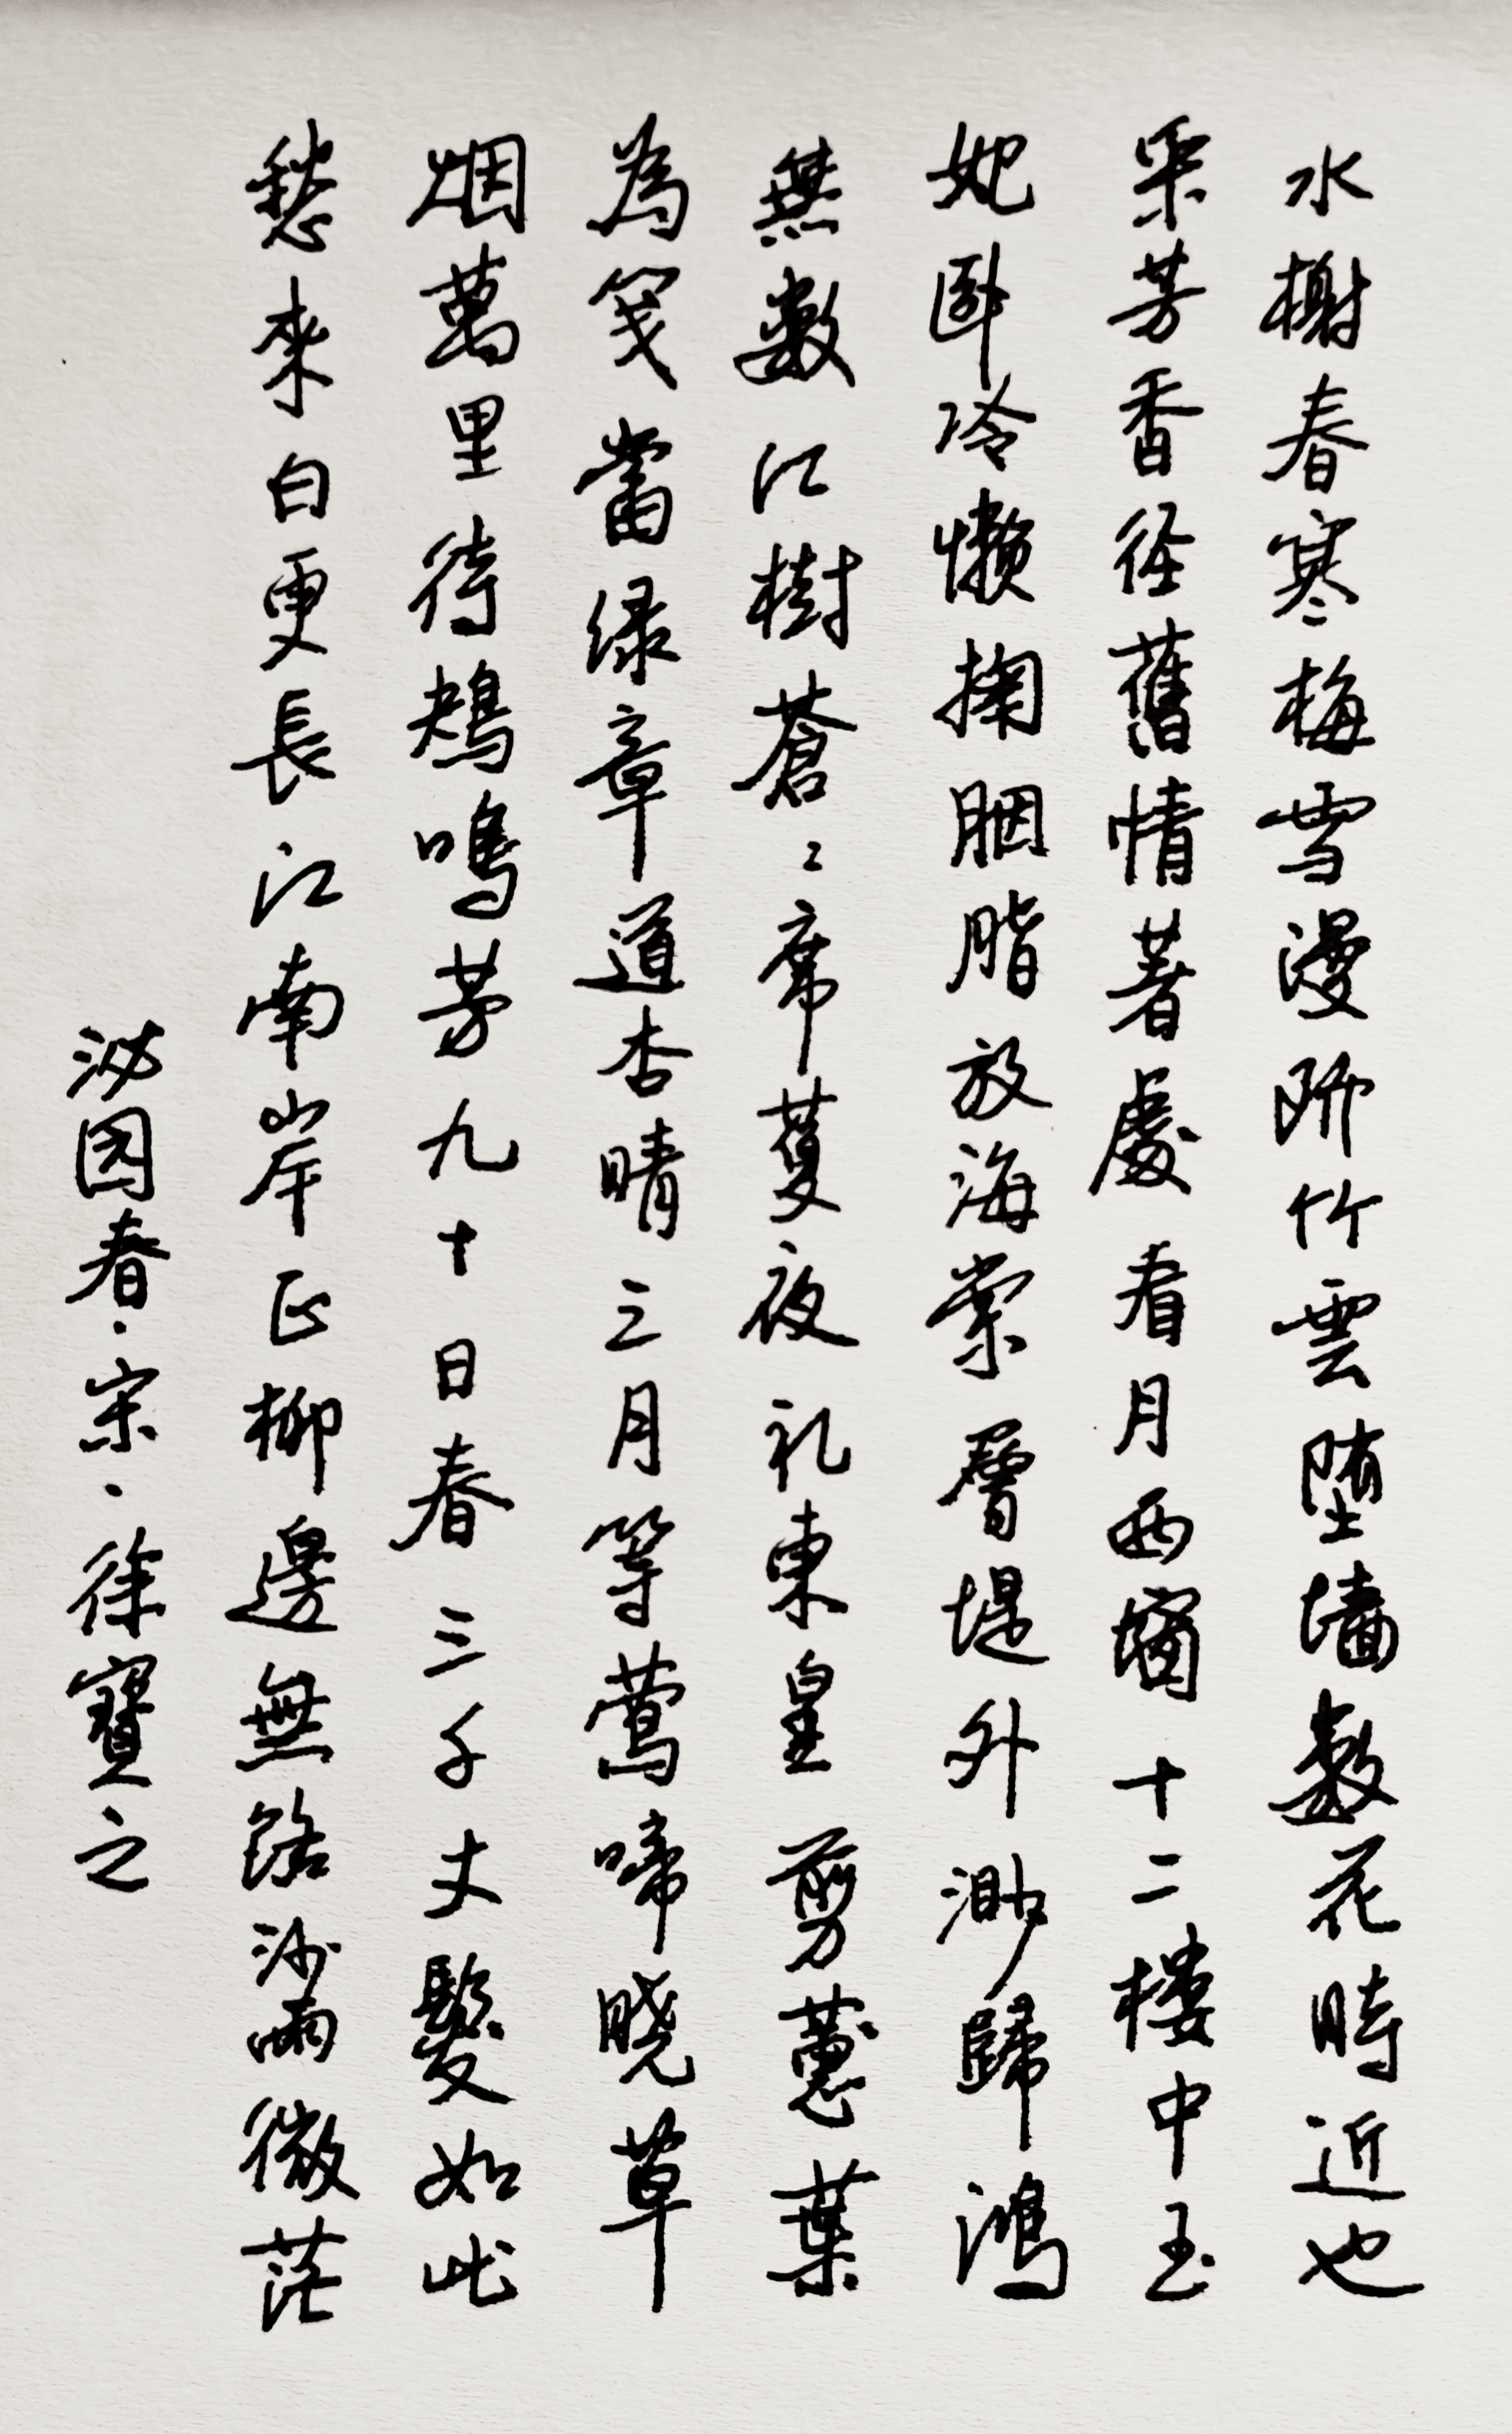 水榭春寒梅雪漫阶竹雲堕墙數花時近也
采芳香径舊情著處看月西窗十二樓中玉
妃卧冷懒掬胭脂放海棠層堤外渺歸鴻
無數江樹蒼〻席蔓夜礼東皇剪蕙葉
為笺當绿章道杏晴三月等莺啼晓草
烟萬里待鴂鳴芳九十日春三千丈髮如此
愁來白更長江南岸正柳邊無路沙雨微茫
沁园春·宋·徐寶之